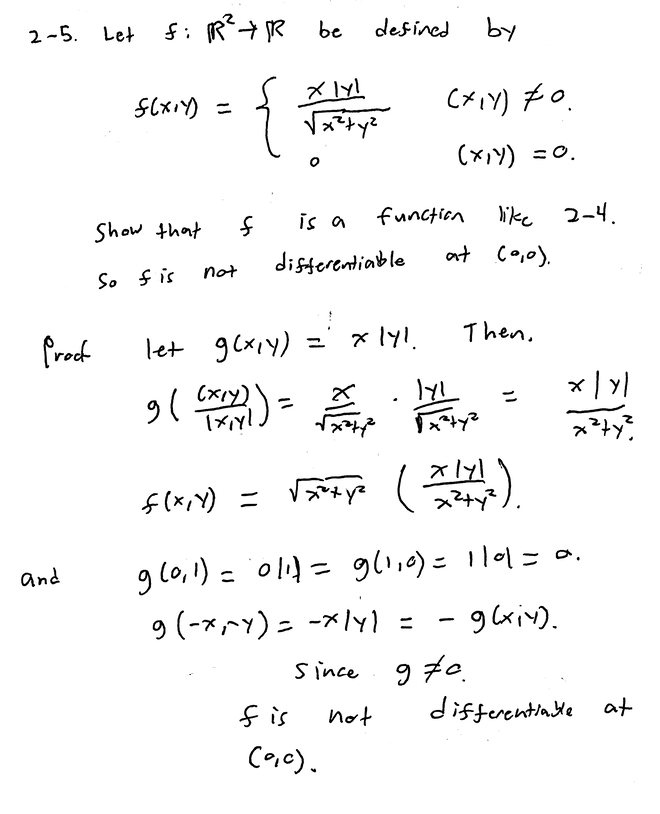 2-5. Let f: ℝ² → ℝ be defined by
f(x,y) = { x|y| / √(x²+y²)   (x,y) ≠ 0.
0   (x,y) = 0.
Show that f is a function like 2-4.
So f is not differentiable at (0,0).
Proof let g(x,y) = x|y|. Then.
g( (x,y) / |x,y| ) = x / √(x²+y²) · |y| / √(x²+y²) = x|y| / x²+y².
f(x,y) = √(x²+y²) ( x|y| / x²+y² ).
and g(0,1) = 0|1| = g(1,0) = 1|0| = 0.
g(-x,-y) = -x|y| = - g(x,y).
Since g ≠ 0.
f is not differentiable at
(0,0).